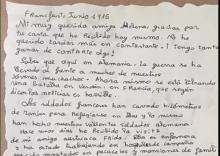 Frankfurt Junio 1916
Mi muy querida amiga Helena, gracias por
tu carta que he recibido hoy mismo. No he
querido tardar más en contestarte! Tengo tanta
ganas de contarte algo
Sabes que aquí en Alemania, la guerra se ha
llevado al frente a muchos de nuestros
jóvenes muchachos. Ahora mismo se está librando
una batalla de Verdún en Francia, que según
dicen las noticias es horrible.
Los soldados franceses han cavado kilómetros
de para refugiarse en ellas y lo mismo
han hecho nuestros valientes soldados alemanes.
Hace unos días he recibido la visita
de mi amiga Ella es enfermera
y ha estado trabajando en hospitales de campaña